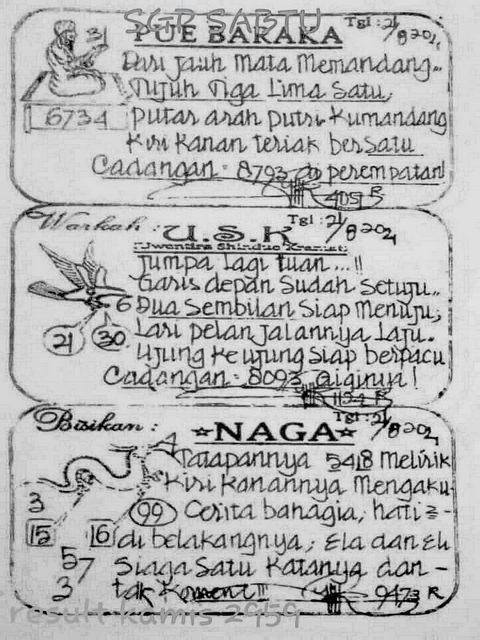 SGP SABTU
31
PUE BARAKA
Tgl : 21/8 2021
Dari jauh Mata Memandang..
Tujuh Tiga Lima Satu,
6734
Putar arah putri Kumandang
Kiri Kanan teriak bersatu
Cadangan = 8793 di perempatan!
4051 R
Warkah :
U.S.K
Tgl : 21/8 2021
Jumpa lagi tuan ...!!
Garis depan Sudah Setuju..
6
Dua Sembilan Siap Menuju,
21
30
Lari pelan jalannya Laju.
Ujung Ke ujung Siap berpacu
Cadangan = 8093
Bisikan :
NAGA
Tgl : 21/8 2021
4
Tatapannya 5418 Melirik
Kiri Kanannya Mengaku
3
99
Cerita bahagia, hati2-
15
16
di belakangnya, Ela dan Eli
57
Siaga Satu Katanya dan -
3
tak Koment !!!
9473 R
result kamis 2959